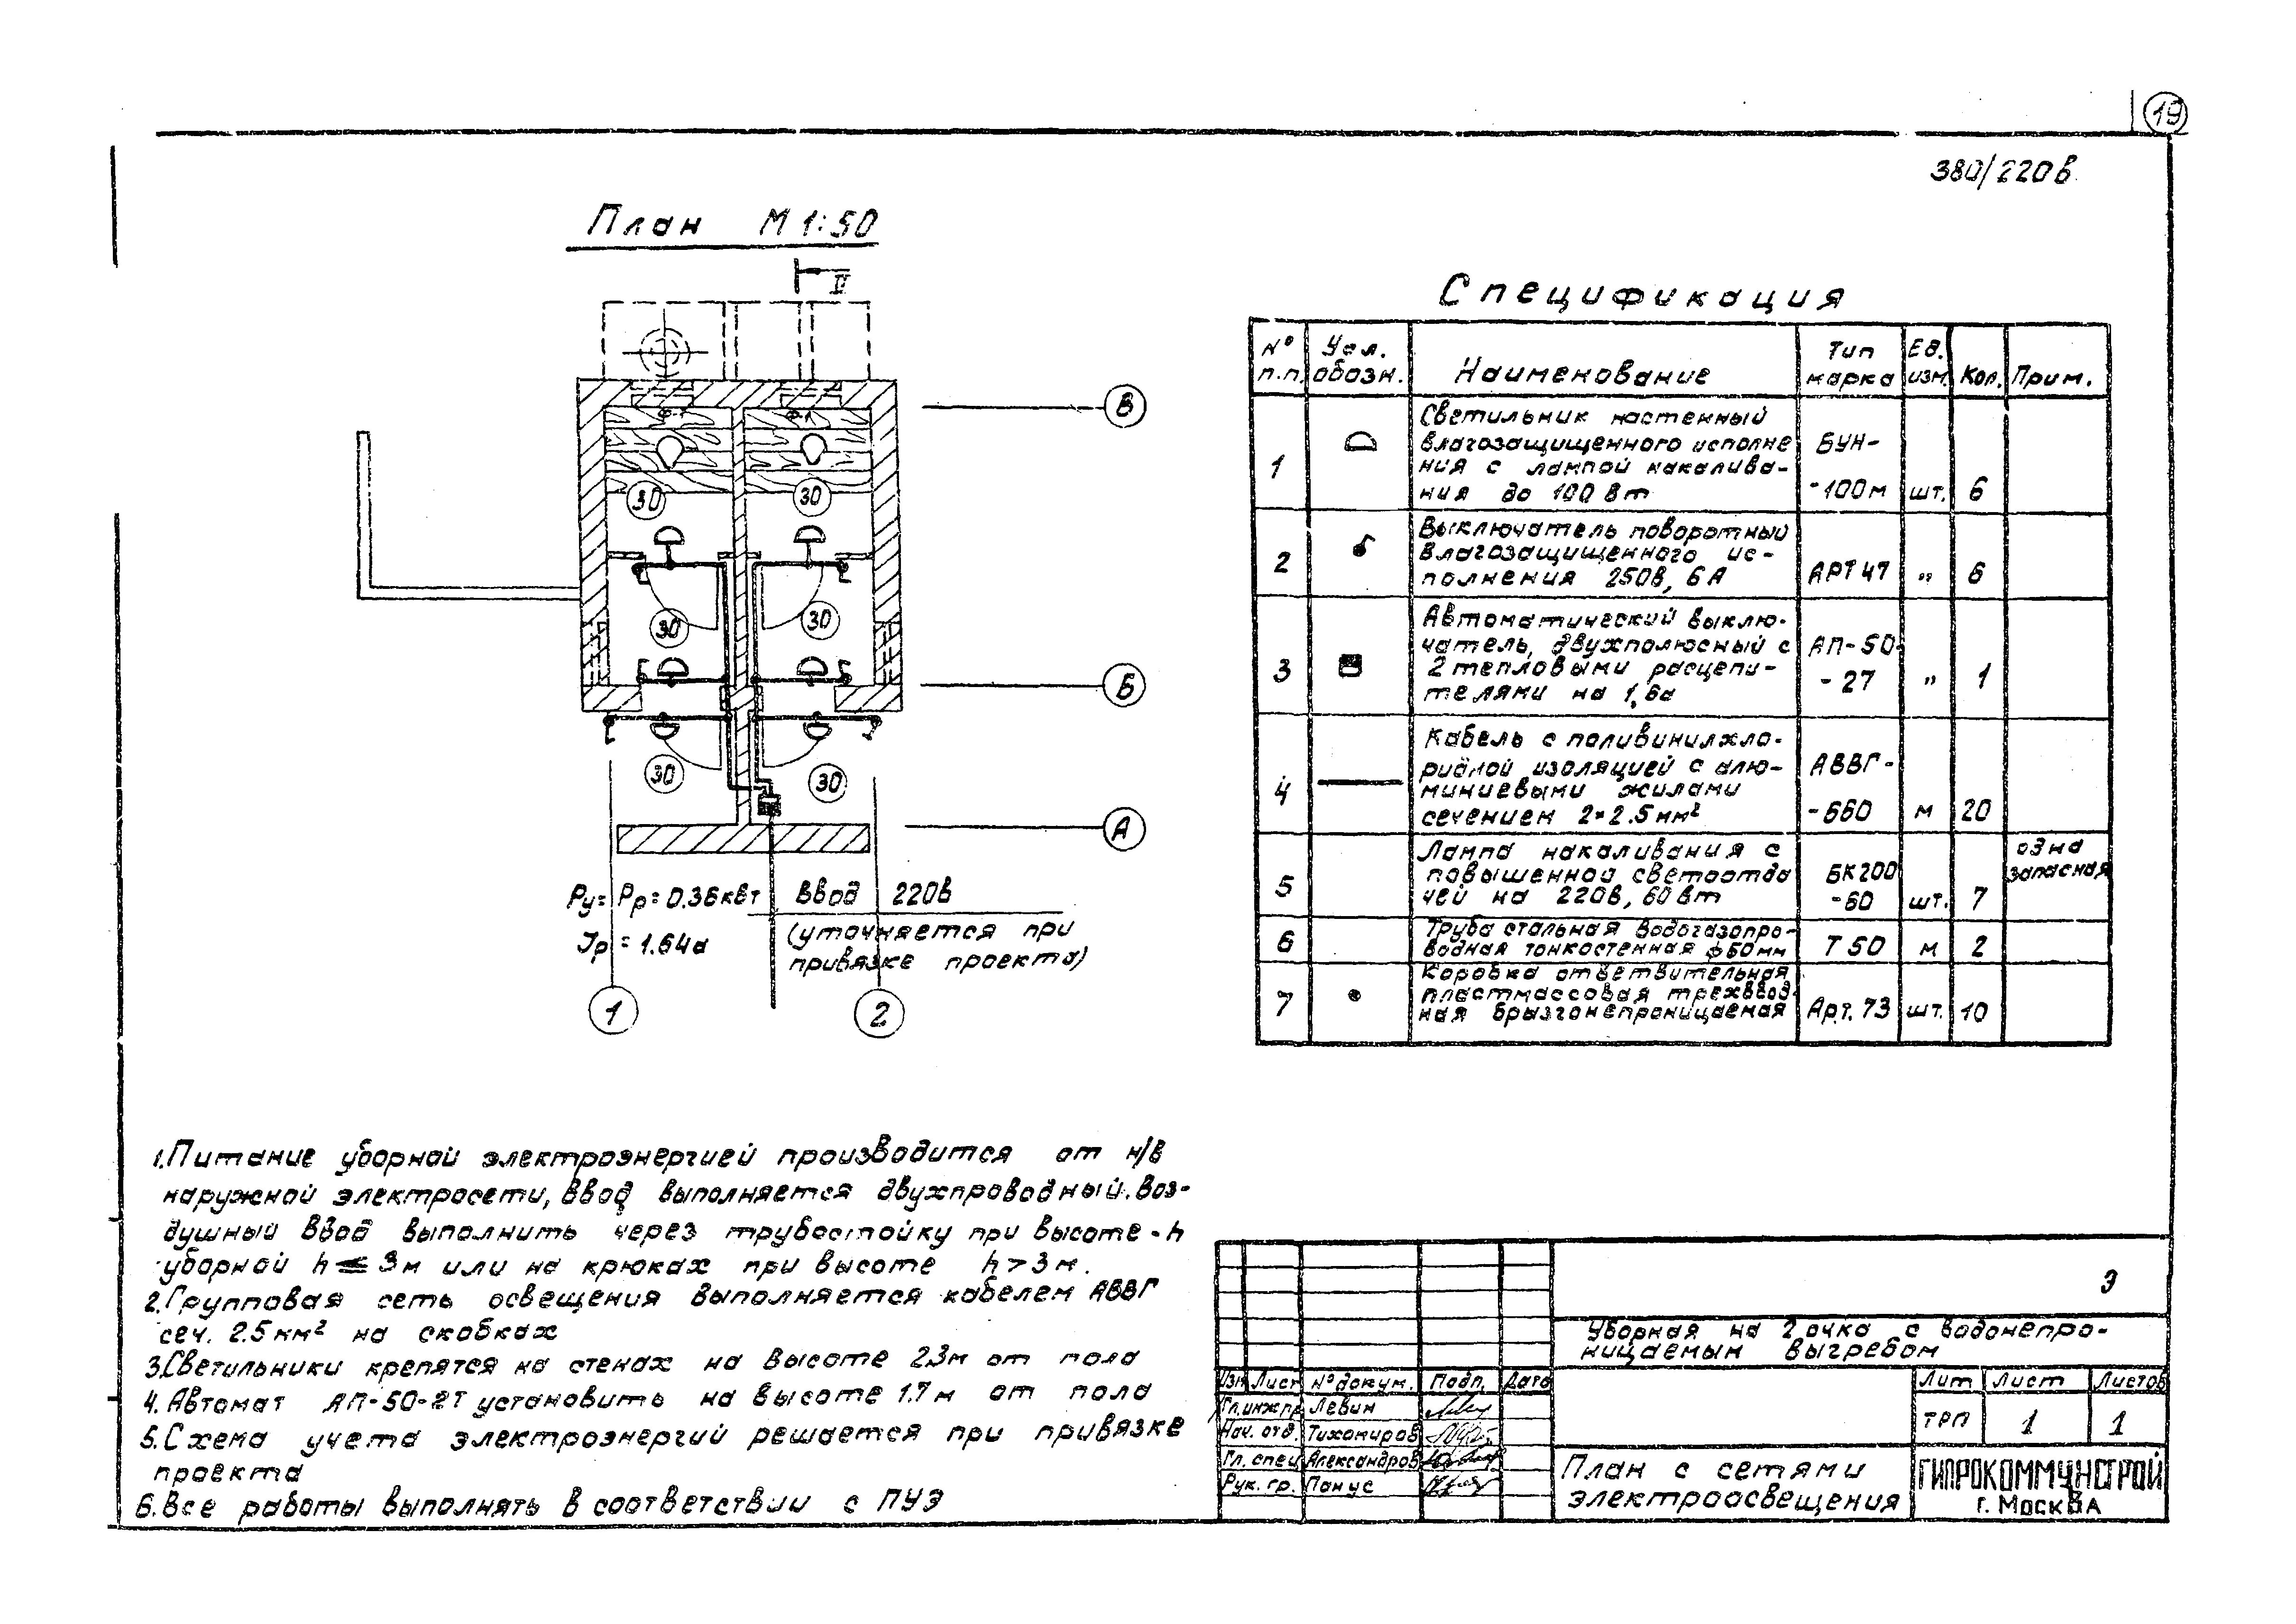 19
380/220в
План М 1:50
II
Ф-1 Ф-1
В
30 30
30 30
Б
30 30
А
Ру= Рр= 0.36квт Ввод 220в
Jр = 1.64а (уточняется при
привязке проекта)
1 2
Спецификация
№ п.п. Усл. обозн. Наименование Тип марка Ед. изм. Кол. Прим.
1 Светильник настенный
влагозащищенного исполне
ния с лампой накалива-
ния до 100 вт
БУН-
-100м шт. 6
2 Выключатель поворотный
влагозащищенного ис-
полнения 250в, 6А
АРТ 47 „ 6
3 Автоматический выклю-
чатель, двухполюсный с
2 тепловыми расцепи-
телями на 1,6а
АП-50-
-27 „ 1
4 Кабель с поливинилхло-
ридной изоляцией с алю-
миниевыми жилами
сечением 2×2.5мм²
АВВГ-
-660 м 20
5 Лампа накаливания с
повышенной светоотда
чей на 220в, 60вт
БК200
-60 шт. 7 одна
запасная
6 Труба стальная водогазопро-
водная тонкостенная ф50мм
Т 50 м 2
7 Коробка ответвительная
пластмассовая трехввод-
ная брызгонепроницаемая
Арт. 73 шт. 10
1. Питание уборной электроэнергией производится от н/в
наружной электросети, ввод выполняется двухпроводный. Воз-
душный ввод выполнить через трубостойку при высоте - h
уборной h ≤ 3м или на крюках при высоте h > 3м.
2. Групповая сеть освещения выполняется кабелем АВВГ
сеч. 2.5мм² на скобках
3. Светильники крепятся на стенах на высоте 2.3м от пола
4. Автомат АП-50-2Т установить на высоте 1.7м от пола
5. Схема учета электроэнергий решается при привязке
проекта
6. Все работы выполнять в соответствии с ПУЭ
Э
Уборная на 2 очка с водонепро-
ницаемым выгребом
Изм Лист № докум. Подп. Дата
Гл.инж.пр Левин
Нач. отд. Тихомиров
Гл. спец. Александров
Рук. гр. Панус
Лит Лист Листов
ТРП 1 1
План с сетями
электроосвещения
ГИПРОКОММУНСТРОЙ
г. Москва